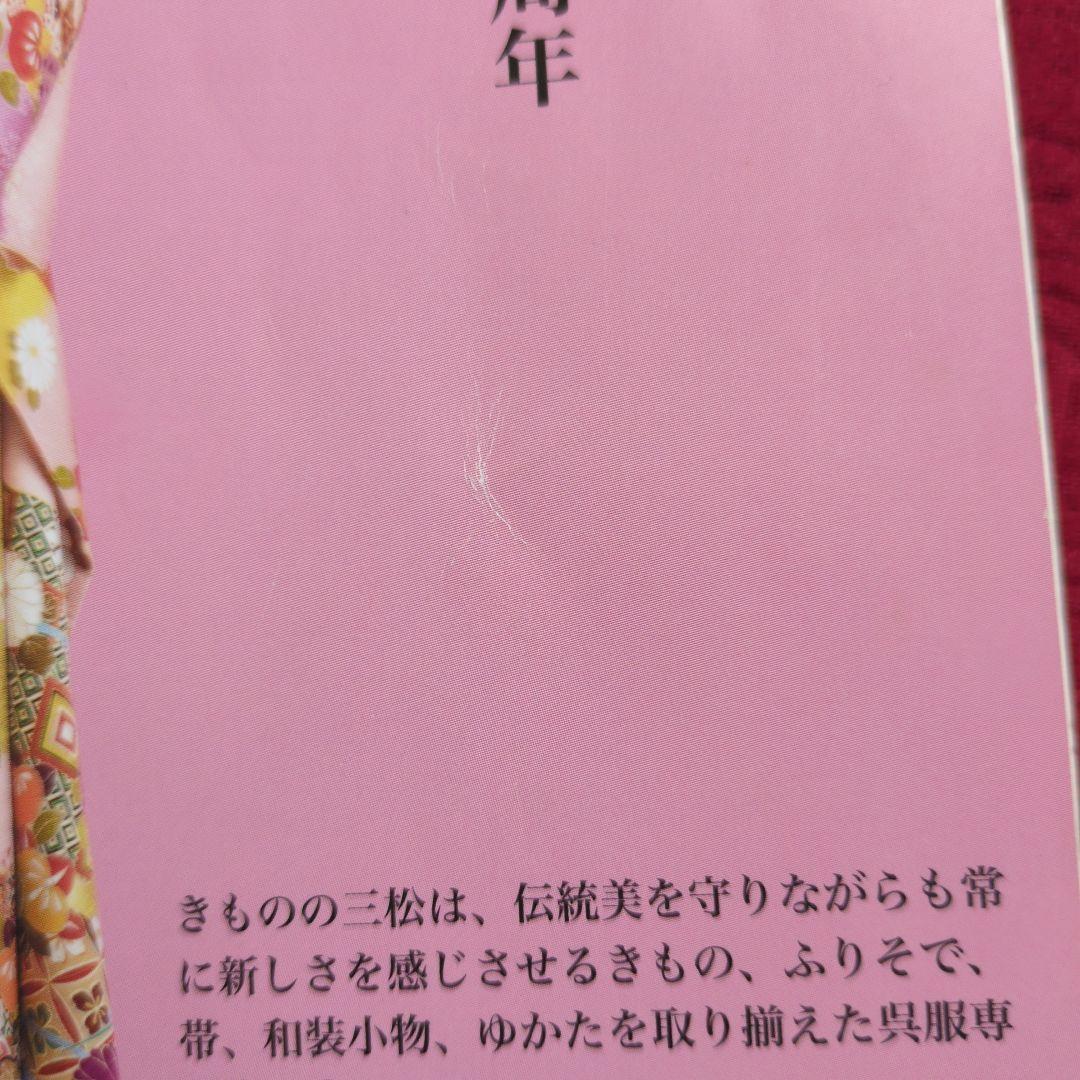 周年
きものの三松は、伝統美を守りながらも常
に新しさを感じさせるきもの、ふりそで、
帯、和装小物、ゆかたを取り揃えた呉服専